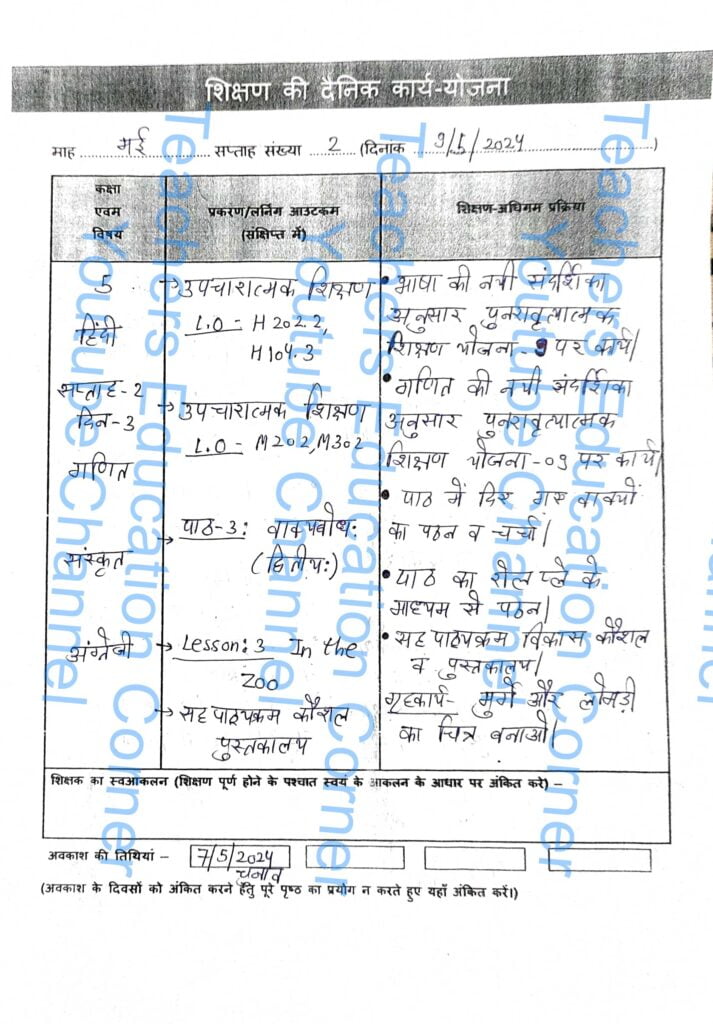 शिक्षण की दैनिक कार्य-योजना
माह मई सप्ताह संख्या 2 (दिनाक 9/5/2024)
कक्षा
एवम
विषय
प्रकरण/लर्निग आउटकम
(संक्षिप्त में)
शिक्षण-अधिगम प्रक्रिया
5
हिंदी
सप्ताह-2
दिन-3
गणित
संस्कृत
अंग्रेजी
→ उपचारात्मक शिक्षण
L.O - H202.2,
H104.3
→ उपचारात्मक शिक्षण
L.O - M202, M302
→ पाठ-3: वाक्यबोधः
(द्वितीयः)
→ Lesson: 3 In the
Zoo
→ सह पाठ्यक्रम कौशल
पुस्तकालय
• भाषा की नयी संदर्शिका
अनुसार पुनरावृत्यात्मक
शिक्षण योजना - 9 पर कार्य।
• गणित की नयी संदर्शिका
अनुसार पुनरावृत्यात्मक
शिक्षण योजना - 09 पर कार्य।
• पाठ में दिए गए वाक्यों
का पठन व चर्चा।
• पाठ का रोल प्ले के
माध्यम से पठन।
• सह पाठ्यक्रम विकास कौशल
व पुस्तकालय।
गृहकार्य- मुर्गे और लोमड़ी
का चित्र बनाओ।
शिक्षक का स्वआकलन (शिक्षण पूर्ण होने के पश्चात स्वयं के आकलन के आधार पर अंकित करे) –
अवकाश की तिथियां – 7/5/2024
चुनाव
(अवकाश के दिवसों को अंकित करने हेतु पूरे पृष्ठ का प्रयोग न करते हुए यहाँ अंकित करें।)
Teachers Education Corner
Youtube Channel
Teachers Education Corner
Youtube Channel